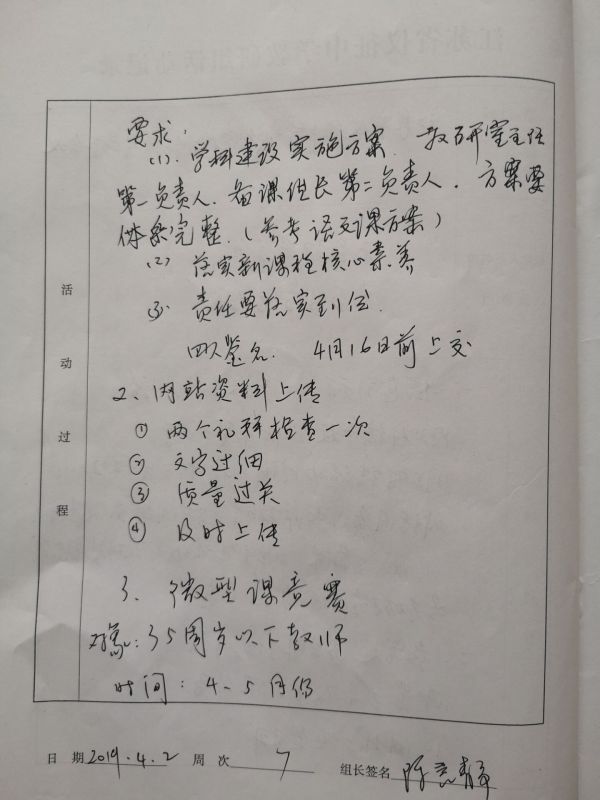 要求:
(1). 学科建设实施方案. 教研室主任
第一负责人. 备课组长第二负责人. 方案要
体系完整.(参考语文课方案)
(2) 落实新课程核心素养
③ 责任要落实到位.
签名. 4月16日前上交
2、网站资料上传
① 两个礼拜检查一次
② 文字过细
③ 质量过关
④ 及时上传
3、微型课竞赛
对象:35周岁以下教师
时间:4-5月份
活动过程
日期2019.4.2 周次 7 组长签名